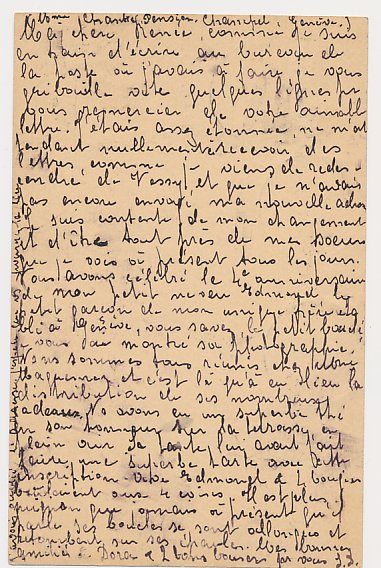 Champel, Genève.)
Ma chère Renée, comme je suis
en train d'écrire au bureau de
la poste où j'avais à faire je vous
gribouille vite quelques lignes pr
vous remercier de votre aimable
lettre. J'étais assez étonnée, ne m'at
tendant nullement à recevoir des
lettres, comme je viens de redes-
cendre de Vessy, et que je n'avais
pas encore envoyé ma nouvelle adres
Je suis contente de mon changement
et d'être tout près de mes soeurs
que je vois à présent tous les jours.
Nous avons célébré le 4e anniversaire
de mon petit neveu Edmond, le
petit garçon de mon unique frère
à Genève, vous savez le petit bouclé
vous ai montré sa photographie.
Nous sommes tous réunis chez
et c'est là qu'a eu lieu la
distribution de ses nombreux
cadeaux. Ns avons eu un superbe thé
en son honneur sur la terrasse en
plein air sa tante lui avait fait
faire une superbe tarte avec cette
inscription Vive Edmond & 4 bougies
brûlaient aux 4 coins. Il est plus
mignon que jamais à présent que
ses boucles se sont allongées et
retombent sur ses épaules. Mes bonnes
amitiés à Dora & 2 bons baisers pr vous